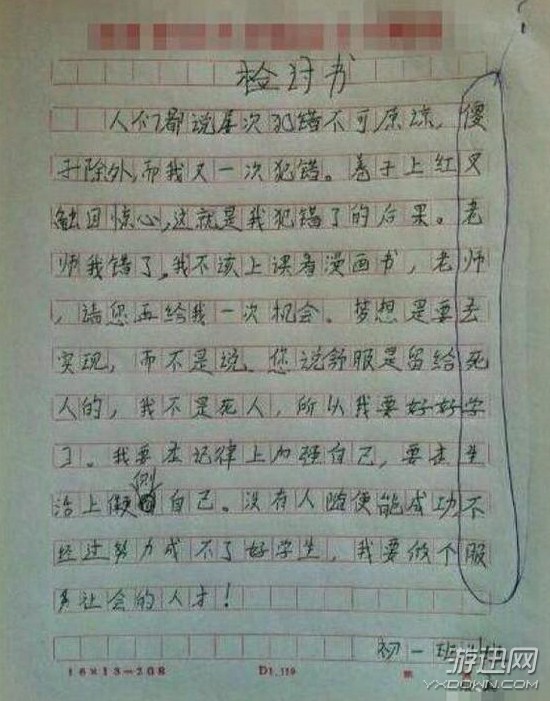 检讨书
人们都说屡次犯错不可原谅，傻
子除外，而我又一次犯错。卷子上红叉
触目惊心，这就是我犯错了的后果。老
师我错了，我不该上课看漫画书，老师
，请您再给我一次机会。梦想是要去
实现，而不是说。您说舒服是留给死
人的，我不是死人，所以我要好好学
了。我要在纪律上加强自己，要在生
活上做到自己。没有人随便能成功不
经过努力成不了好学生，我要做个服
务社会的人才！
初一班
16×13=208
D1.119
游迅网
YXDOWN.COM